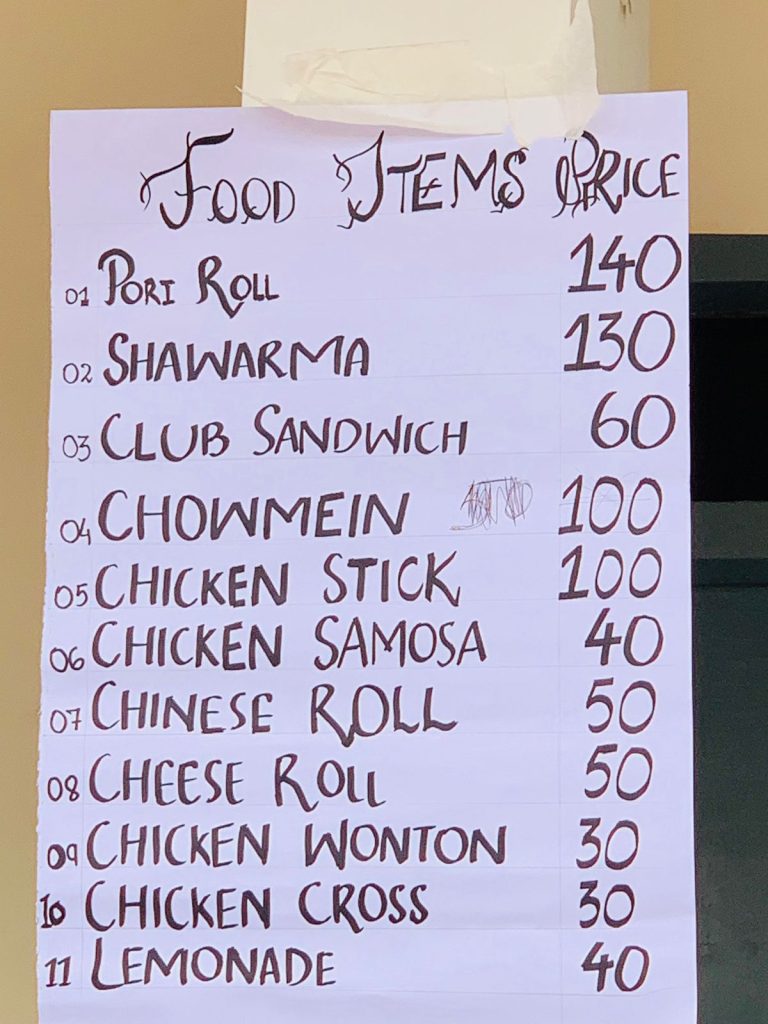 FOOD ITEMS PRICE
01 PORI ROLL 140
02 SHAWARMA 130
03 CLUB SANDWICH 60
04 CHOWMEIN 100
05 CHICKEN STICK 100
06 CHICKEN SAMOSA 40
07 CHINESE ROLL 50
08 CHEESE ROLL 50
09 CHICKEN WONTON 30
10 CHICKEN CROSS 30
11 LEMONADE 40